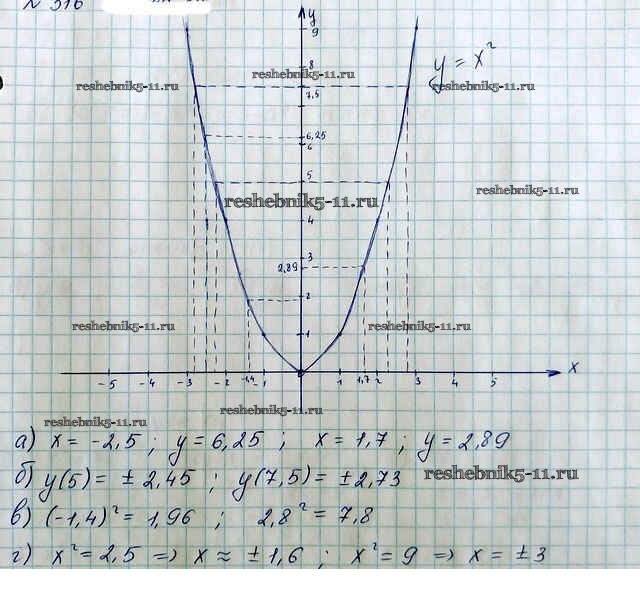 № 516
y
9
y = x²
8
reshebnik5-11.ru
reshebnik5-11.ru reshebnik5-11.ru
7,5
6,25
6
5
reshebnik5-11.ru
reshebnik5-11.ru
4
3
2,89
2
reshebnik5-11.ru reshebnik5-11.ru
1
x
-5 -4 -3 -2 -1,4 -1 1 1,7 2 3 4 5
reshebnik5-11.ru reshebnik5-11.ru
а) x = -2,5 ; y = 6,25 ; x = 1,7 ; y = 2,89
б) y(5) = ± 2,45 ; y(7,5) = ± 2,73
reshebnik5-11.ru
в) (-1,4)² = 1,96 ; 2,8² = 7,8
г) x² = 2,5 => x ≈ ± 1,6 ; x² = 9 => x = ± 3